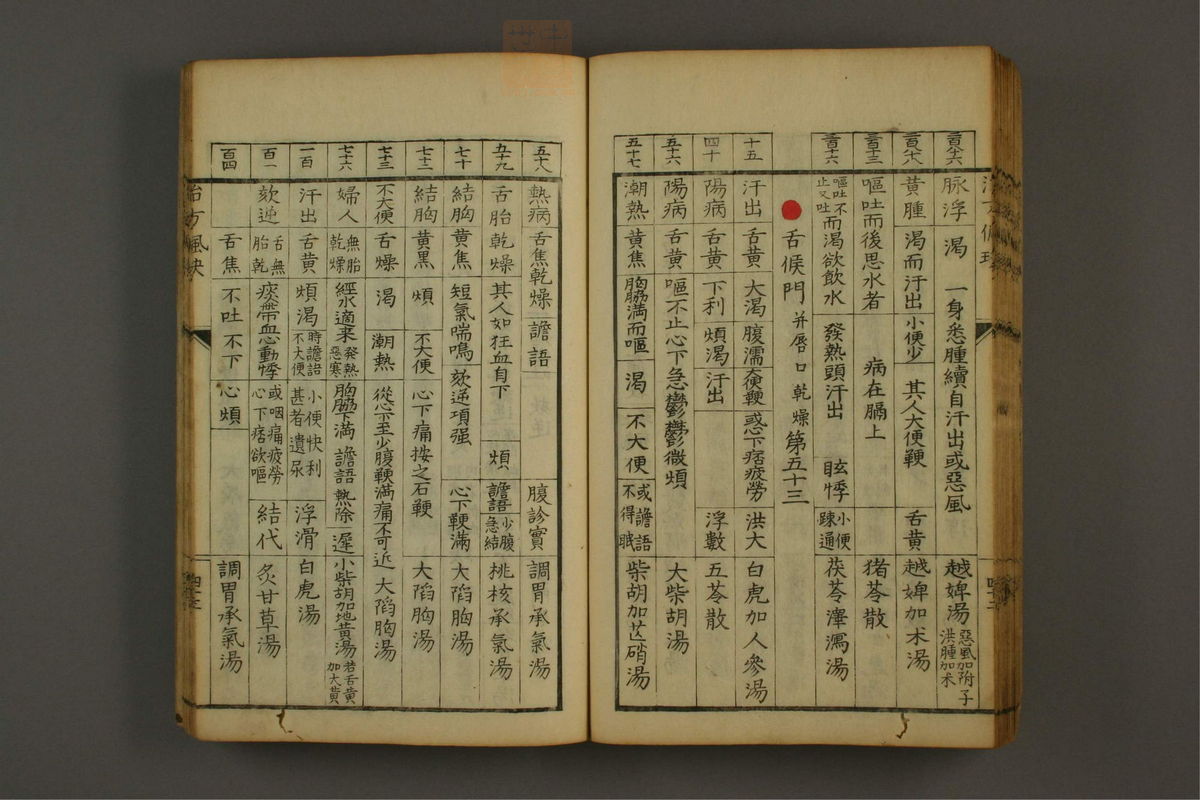 脉浮 渴 一身悉腫續自汗出或惡風 越婢湯 惡風加附子 洪腫加朮
黃腫 渴而汗出 小便少 其人大便鞕 舌黃 越婢加朮湯
嘔吐而後思水者 病在膈上 猪苓散
嘔吐不止又吐而渴欲飲水 發熱頭汗出 眩悸 小便踈通 茯苓澤瀉湯
舌候門 并唇口乾燥 第五十三
十五 汗出 舌黃 大渴 腹濡 大便鞕 惑下痞疲勞 洪大 白虎加人參湯
四十 陽病 舌黃 下利 煩渴 汗出 浮數 五苓散
五十六 陽病 舌黃 嘔不止心下急鬱鬱微煩 大柴胡湯
五十七 潮熱 黃焦 胸脇滿而嘔 渴 不大便 或譫語不得眠 柴胡加芒硝湯
五十八 熱病 舌焦乾燥 譫語 腹診實 調胃承氣湯
五十九 舌胎乾燥 其人如狂血自下 煩 譫語 少腹急結 桃核承氣湯
七十 結胸 黃焦 短氣喘鳴欬逆項强 心下鞕滿 大陷胸湯
七十二 結胸 黃黑 煩 不大便 心下痛按之石鞕 大陷胸湯
七十三 不大便 舌燥 渴 潮熱 從心下至少腹鞕滿痛不可近 大陷胸湯
七十六 婦人 無胎乾燥 經水適來 發熱惡寒 胸脇下滿 譫語 熱除 遲 小柴胡加地黃湯 若舌黃加大黃
一百 汗出 舌黃 煩渴 時譫語不大便 小便快利甚者遺尿 浮滑 白虎湯
百一 欬逆 舌無胎乾 痰帶血心動悸 或咽痛疲勞心下痞欲嘔 結代 炙甘草湯
百四 舌焦 不吐不下 心煩 調胃承氣湯